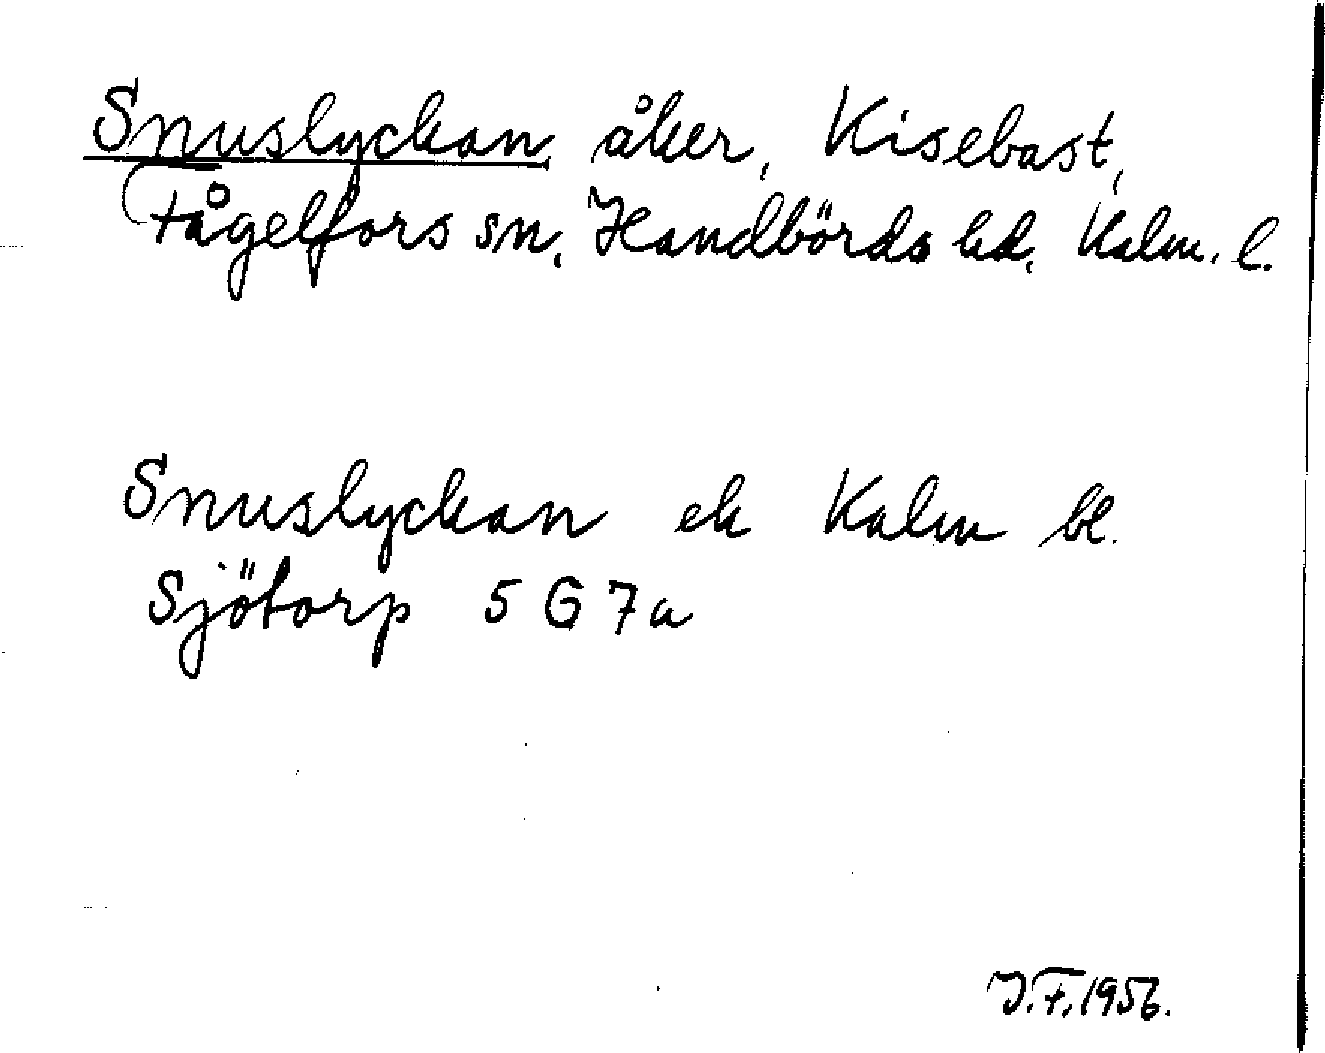 Snuslyckan, åker, Kisebast,
Fågelfors sn, Handbörds hd, Kalm. l.
Snuslyckan ek Kalm bl.
Sjötorp 5 G 7a
J.F. 1956.